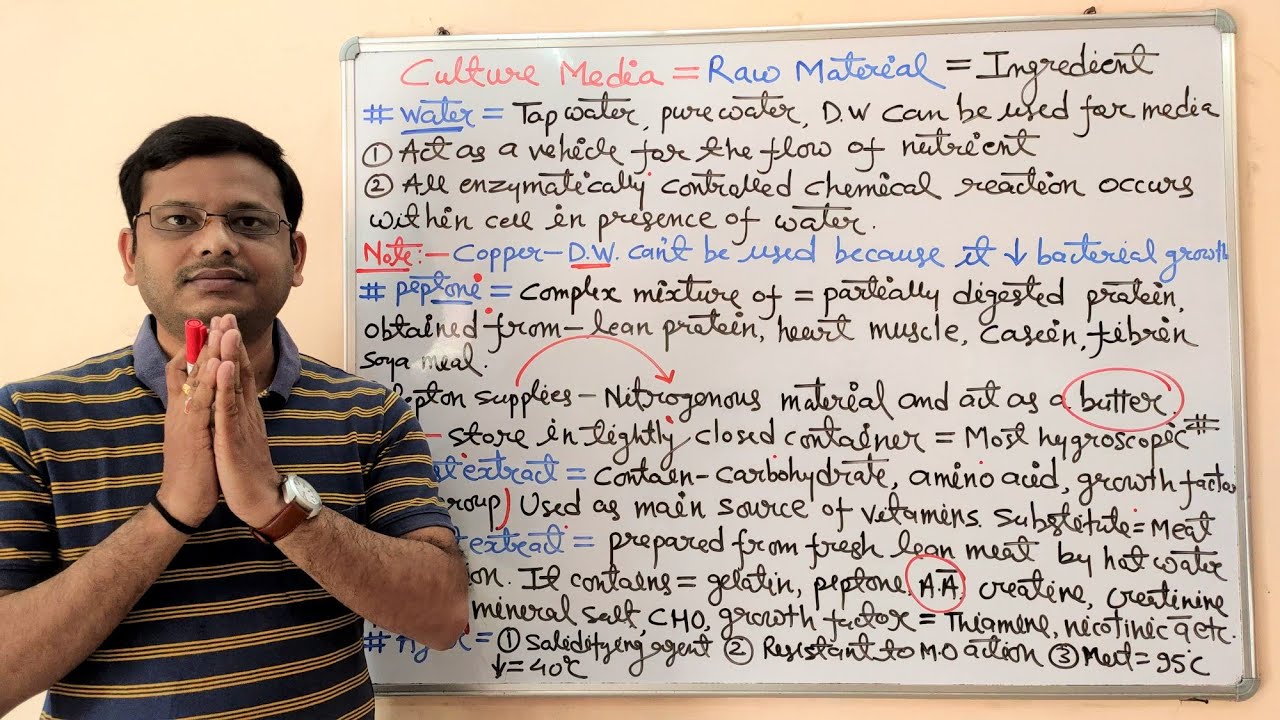 Culture Media = Raw Material = Ingredient
# water = Tap water, pure water, D.W can be used for media
① Act as a vehicle for the flow of nutrient
② All enzymatically controlled chemical reaction occurs
within cell in presence of water.
Note:- Copper- D.W. can't be used because it ↓ bacterial growth
# peptone = complex mixture of = partially digested protein,
obtained from- lean protein, heart muscle, casein, fibrin
soya meal.
Pepton supplies - Nitrogenous material and act as a butter.
- store in tightly closed container = Most hygroscopic #
extract = contain- carbohydrate, amino acid, growth factor
group) Used as main source of vitamins. Substitute = Meat
extract = prepared from fresh lean meat by hot water
It contains = gelatin, peptone, A.A, creatine, creatinine
mineral salt, CHO, growth factor = Thiamine, nicotinic a etc.
# = ① Solidifying agent ② Resistant to M.O action ③ Melt = 95°C
↓ = 40°C